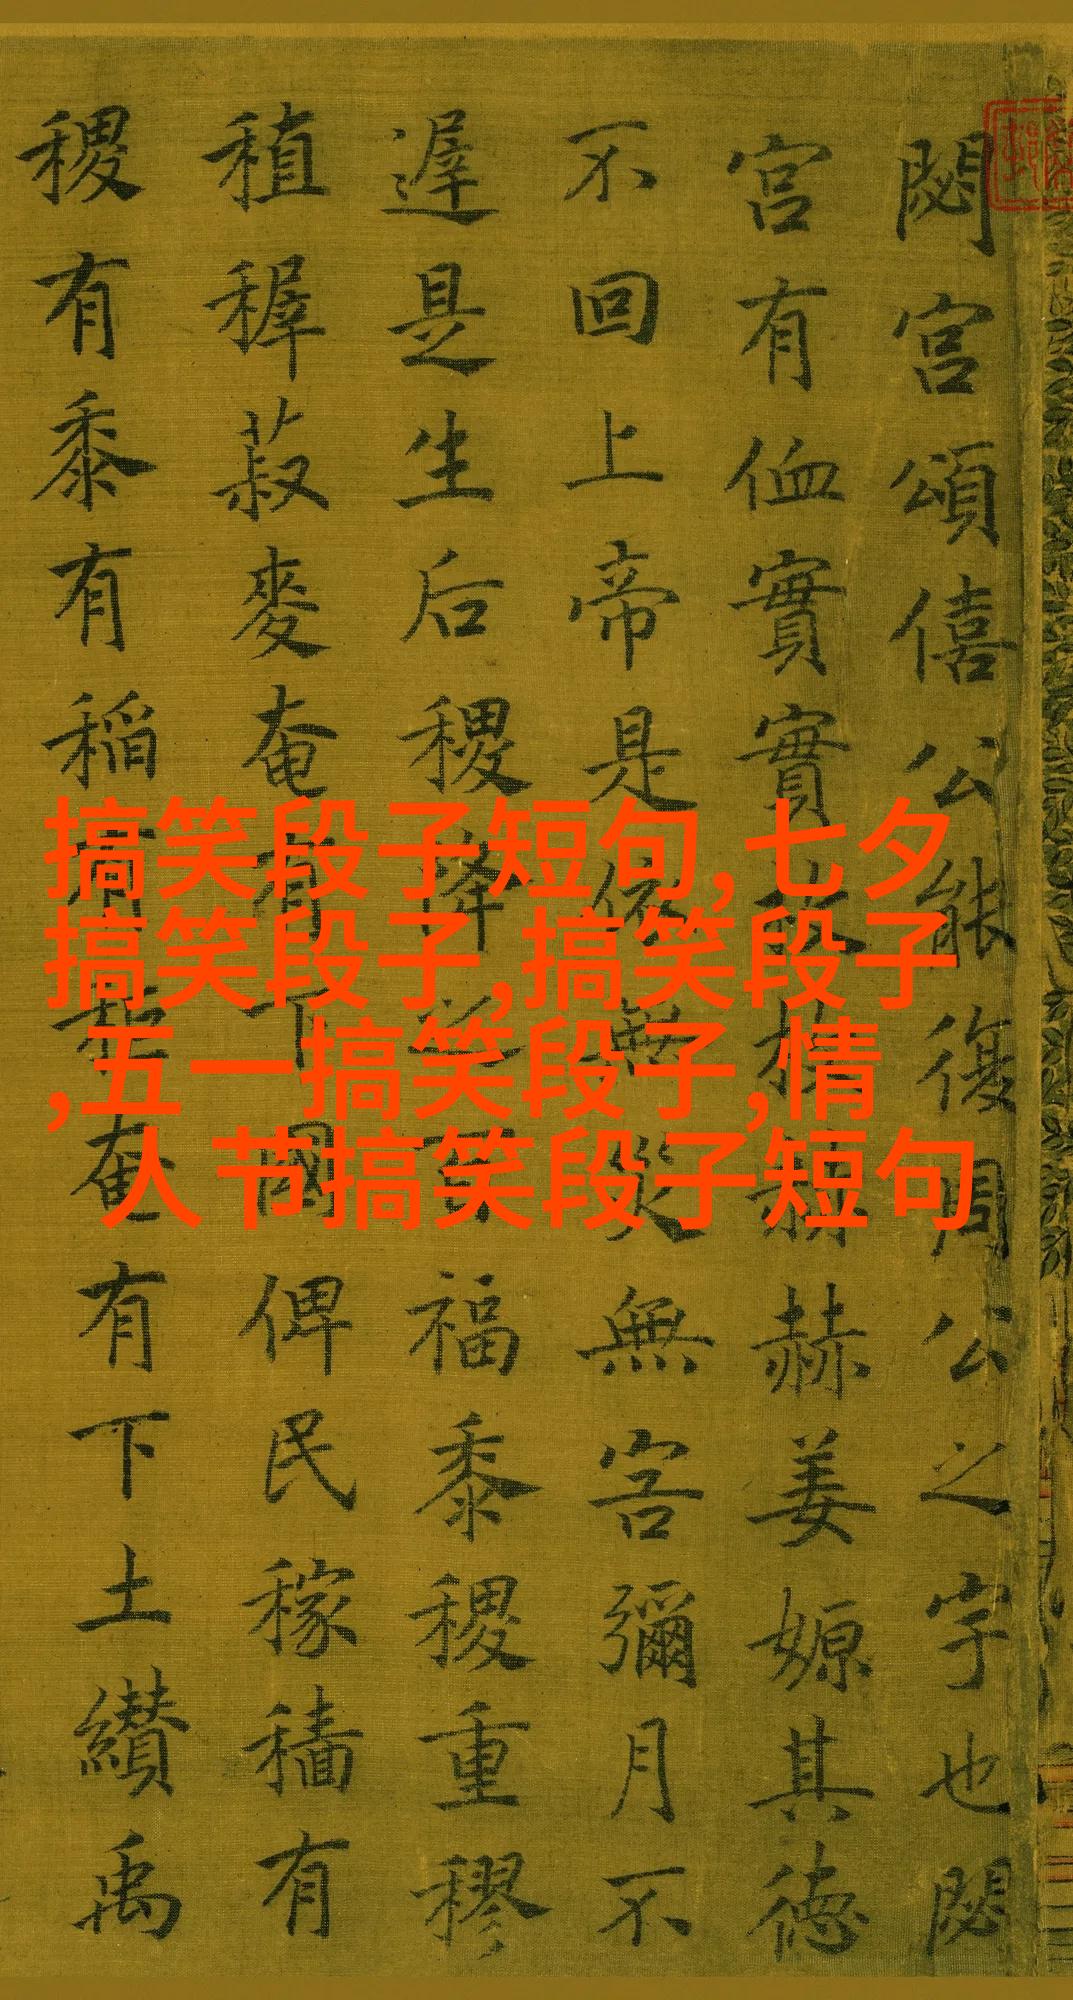 閟宮頌僖公能復周公之宇也閟
宮有侐實實枚枚赫赫姜嫄其德
不回上帝是依無災無害彌月不
遲是生后稷降之百福黍稷重穋
稙稺菽麥奄有下國俾民稼穡有
稷有黍有稻有秬奄有下土纘禹
搞笑段子短句,七夕
搞笑段子,搞笑段子
,五一搞笑段子,情
人节搞笑段子短句